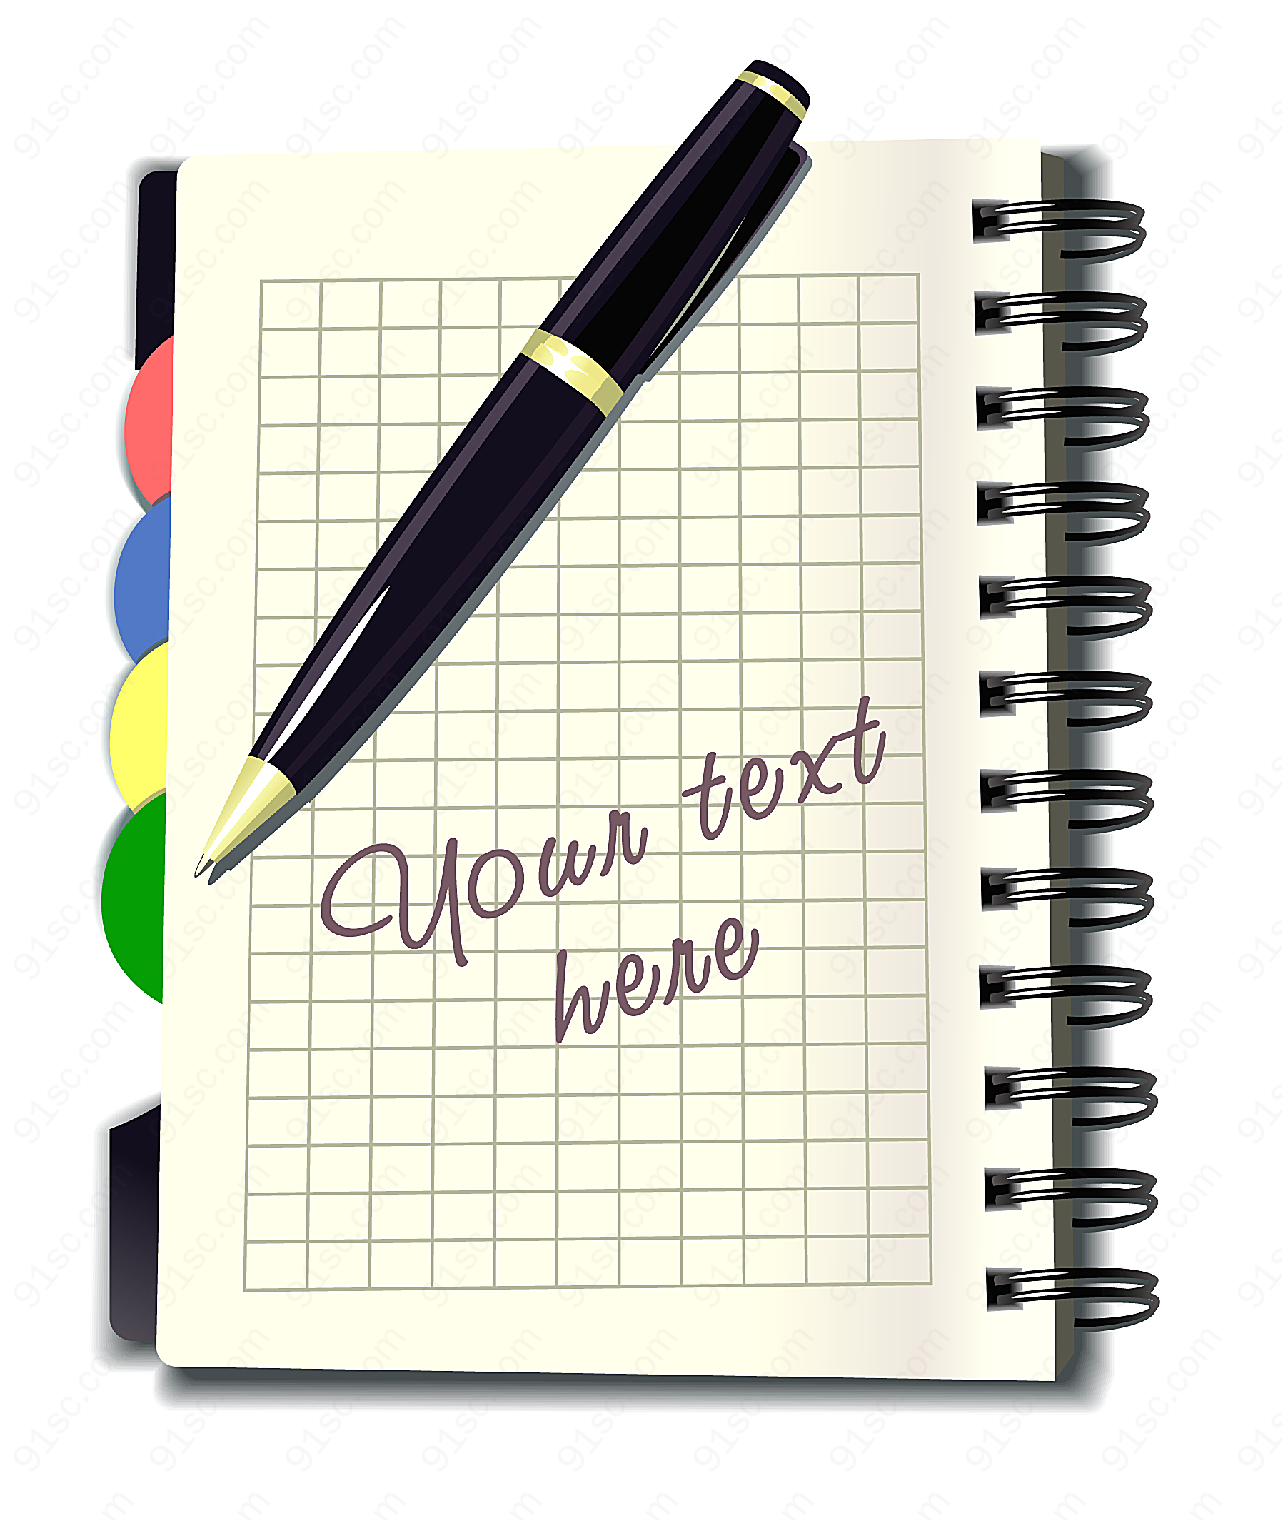 Your text
here
91sc.com